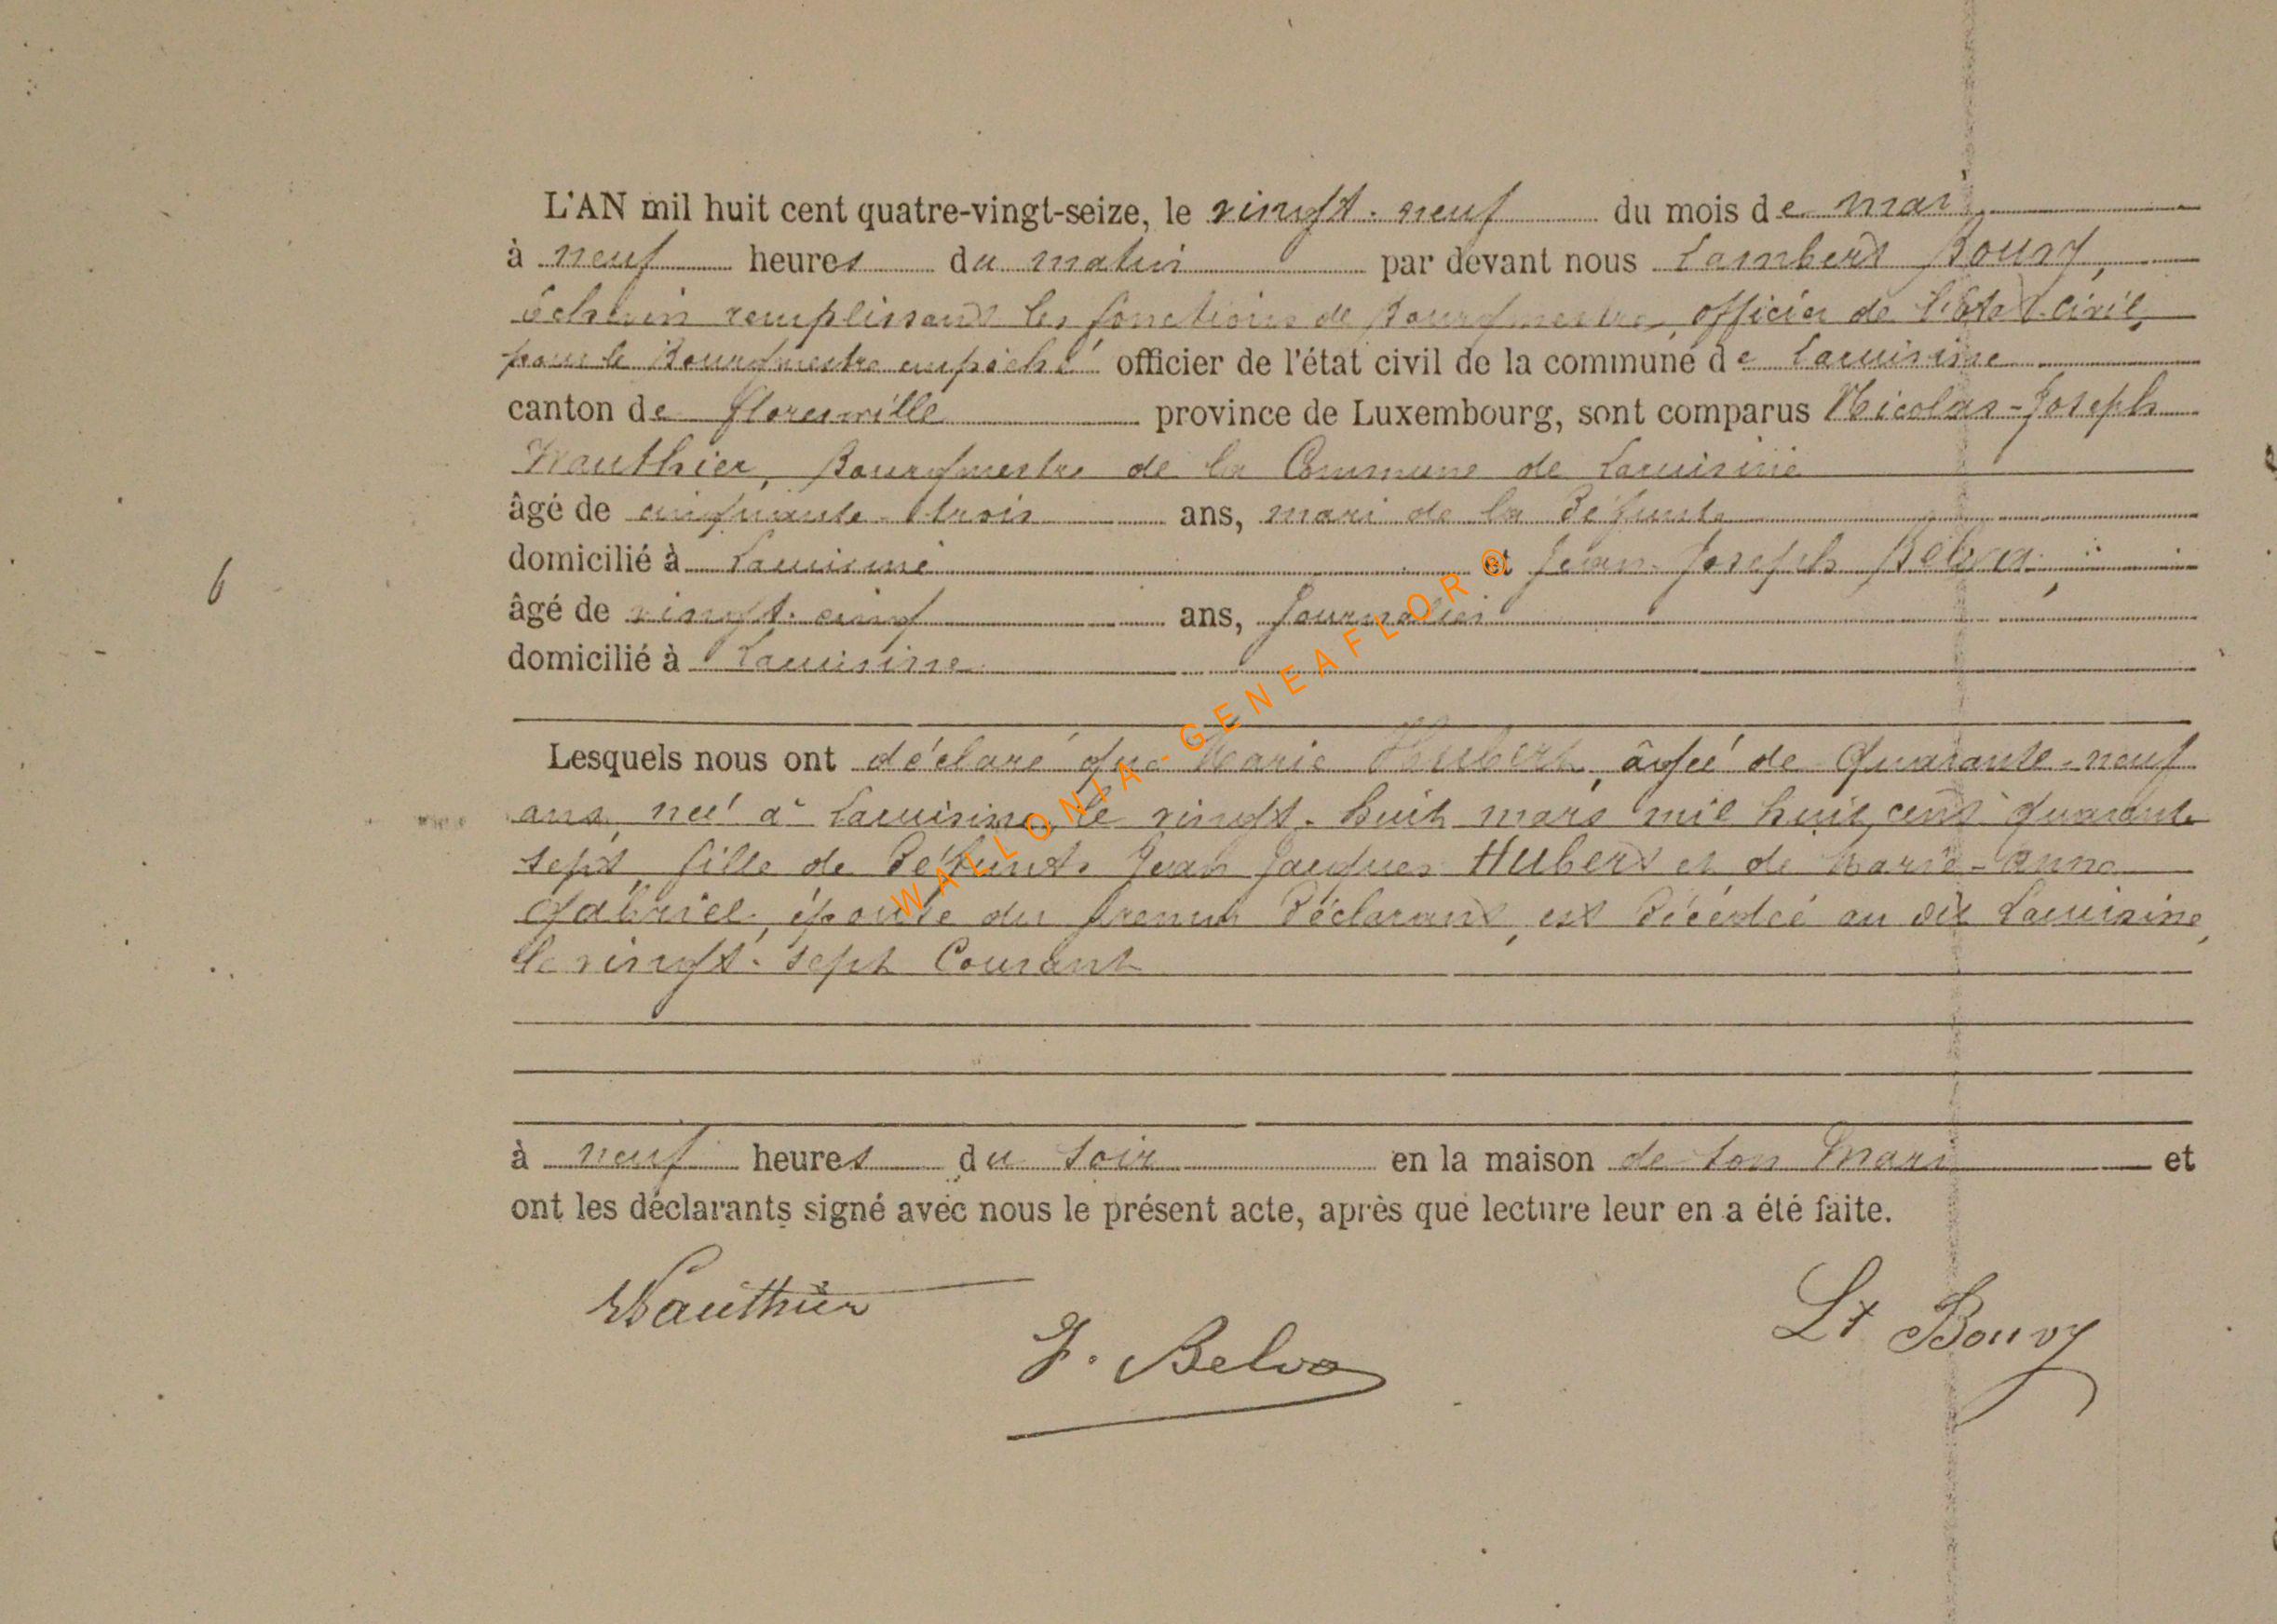 L'AN mil huit cent quatre-vingt-seize, le vingt-neuf du mois de mai
à neuf heures du matin par devant nous Lambert Bouvy,
échevin remplissant les fonctions de Bourgmestre, officier de l'état civil,
pour le Bourgmestre empêché officier de l'état civil de la commune de Lacuisine
canton de florenville province de Luxembourg, sont comparus Nicolas-Joseph
Wauthier, Bourgmestre de la Commune de Lacuisine
âgé de cinquante-trois ans, mari de la défunte
domicilié à Lacuisine et Jean-Joseph Belva,
6
âgé de vingt-cinq ans, Journalier
domicilié à Lacuisine
Lesquels nous ont déclaré que Marie Hubert, âgée de quarante-neuf
ans, née à Lacuisine, le vingt-huit mars mil huit cent quarante
sept, fille de défunts Jean Jacques Hubert et de Marie-Anne
Gabriel, épouse du premier déclarant, est décédée au dit Lacuisine,
le vingt-sept Courant
à neuf heures du soir en la maison de son mari et
ont les déclarants signé avec nous le présent acte, après que lecture leur en a été faite.
Wauthier
J. Belva
Lt Bouvy
WALLONIA-GENEAFLOR®